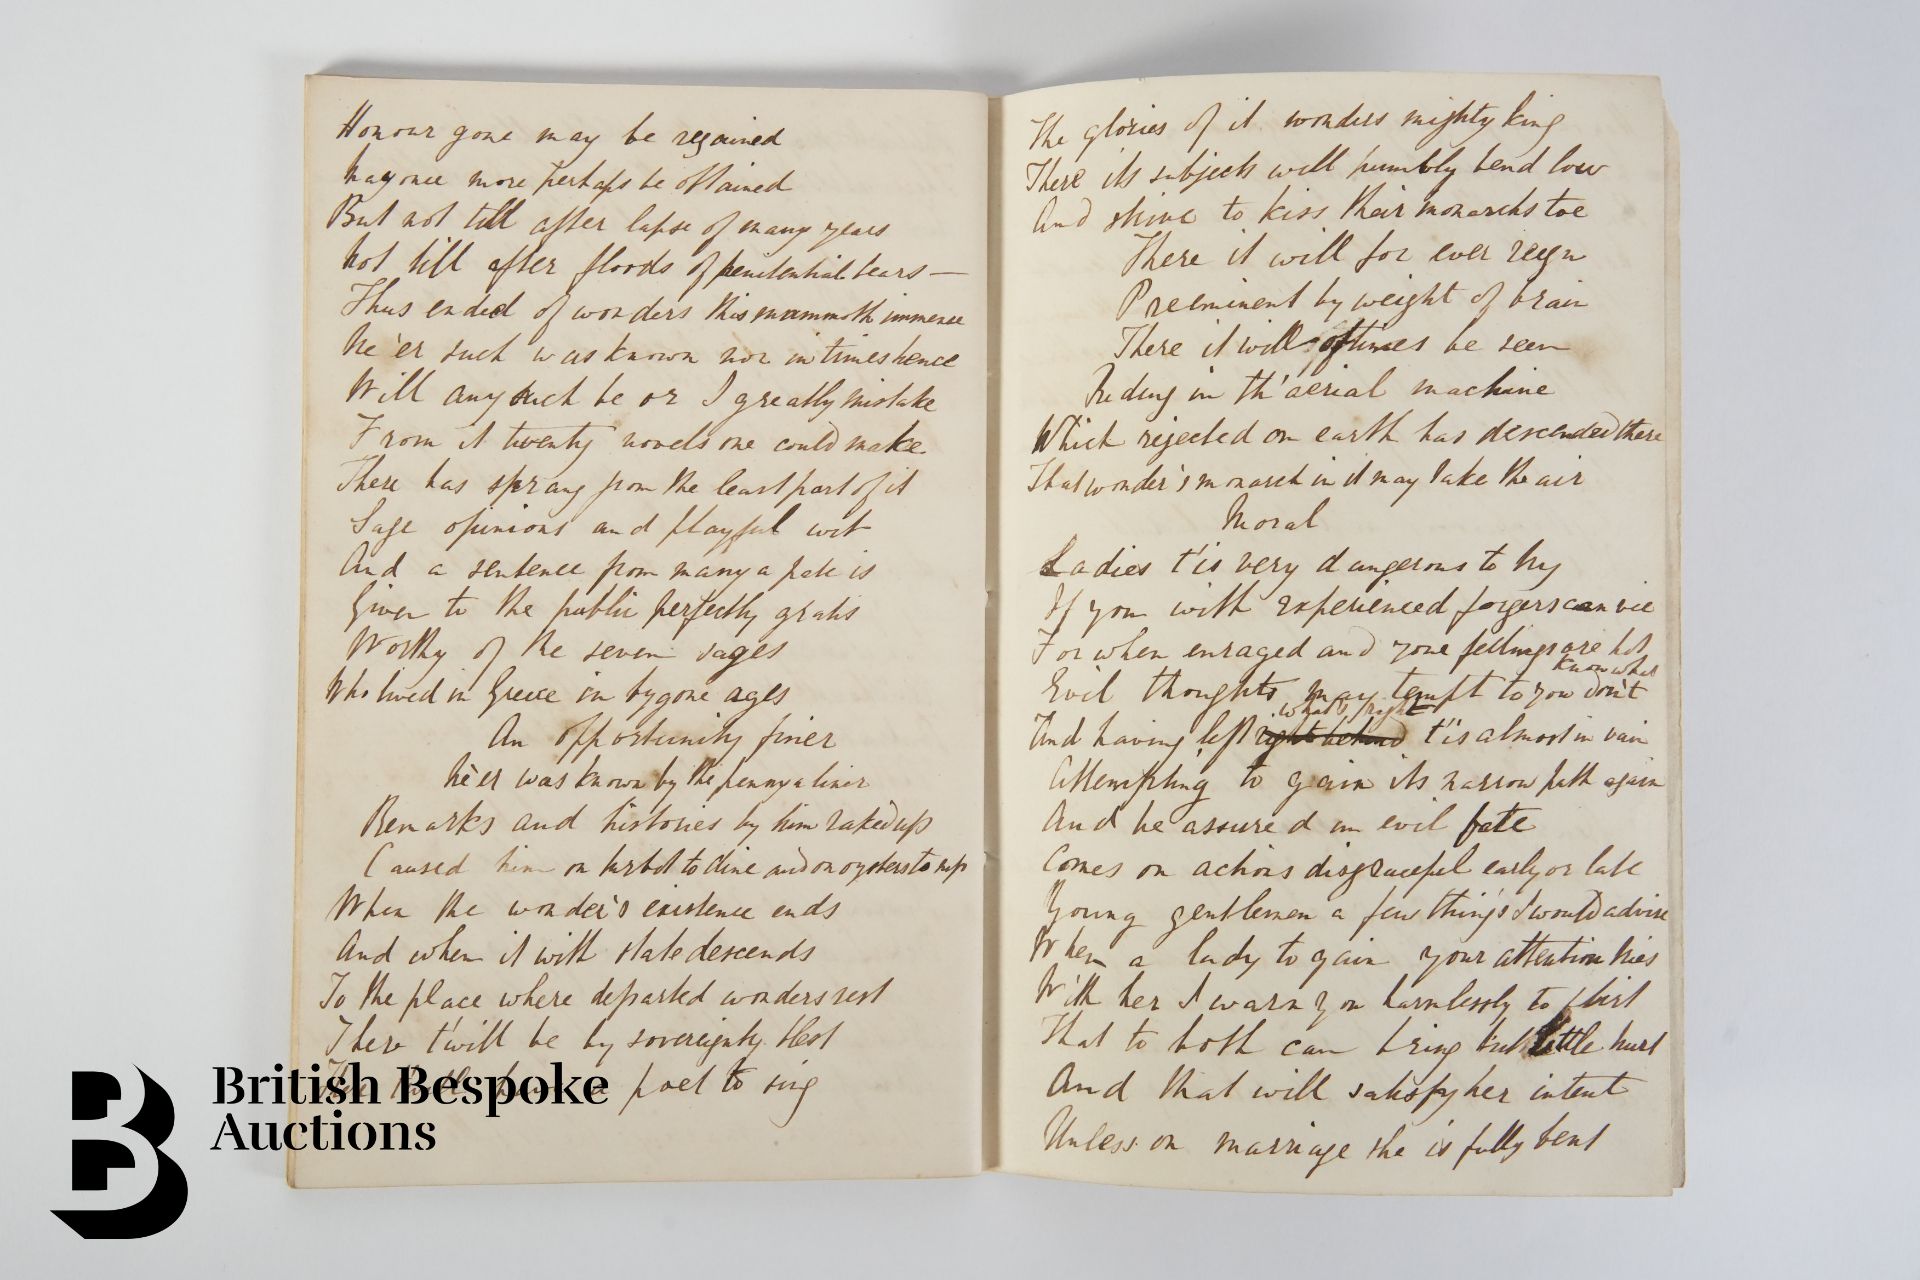 Honour gone may be regained
Nay once more perhaps be obtained
But not till after lapse of many years
Not till after floods of penitential tears —
Thus ended of wonders this mammoth immense
Ne'er such was known nor in times hence
Will any such be or I greatly mistake
From it twenty novels one could make
There has sprang from the least part of it
Sage opinions and playful wit
And a sentence from many a pate is
Given to the public perfectly gratis
Worthy of the seven sages
Who lived in Greece in bygone ages
An opportunity finer
Ne'er was known by the penny a liner
Remarks and histories by him raked up
Caused him on turbot to dine and on oysters to sup
When the wonder's existence ends
And when it with state descends
To the place where departed wonders rest
There t'will be by sovereignty blest
poet to sing
The glories of it wonders mighty king
There its subjects will humbly bend low
And strive to kiss their monarchs toe
There it will for ever reign
Preeminent by weight of brain
There it will oftimes be seen
Riding in th'aerial machine
Which rejected on earth has descended there
That wonder's monarch in it may take the air
Moral
Ladies t'is very dangerous to try
If you with experienced forgers can vie
For when enraged and your fellings are hot
know what
Evil thoughts may tempt to you don't
what's right
And having left right behind t'is almost in vain
Attempting to gain its narrow path again
And be assured an evil fate
Comes on actions disgraceful early or late
Young gentlemen a few things I would advise
When a lady to gain your attention tries
With her I warn you harmlessly to flirt
That to both can bring but little hurt
And that will satisfy her intent
Unless on marriage she is fully bent
B
British Bespoke
Auctions